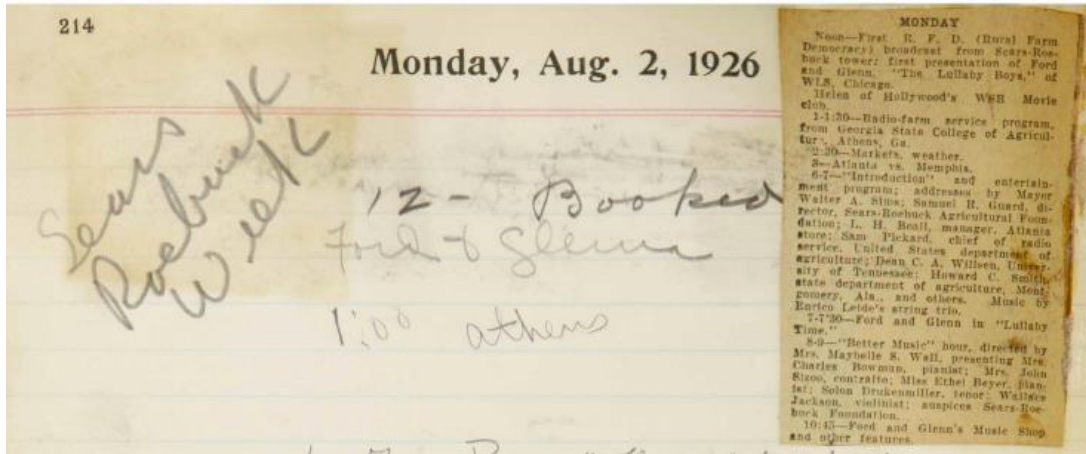 214
Monday, Aug. 2, 1926
Sears
Roebuck
Week
12- Booked
Ford & Glenn
1:00 athens
MONDAY
Noon—First R. F. D. (Rural Farm
Democracy) broadcast from Sears-Roe-
buck tower; first presentation of Ford
and Glenn, "The Lullaby Boys," of
WLS, Chicago.
Helen of Hollywood's WSB Movie
club.
1-1:30—Radio-farm service program,
from Georgia State College of Agricul-
ture, Athens, Ga.
2:30—Markets, weather.
3—Atlanta vs. Memphis.
6-7—"Introduction" and entertain-
ment program; addresses by Mayor
Walter A. Sims; Samuel R. Guard, di-
rector, Sears-Roebuck Agricultural Foun-
dation; L. H. Beall, manager, Atlanta
store; Sam Pickard, chief of radio
service, United States department of
agriculture; Dean C. A. Willsen, Univer-
sity of Tennessee; Howard C. Smith,
state department of agriculture, Mont-
gomery, Ala., and others. Music by
Enrico Leide's string trio.
7-7:30—Ford and Glenn in "Lullaby
Time."
8-9—"Better Music" hour, directed by
Mrs. Maybelle S. Wall, presenting Mrs.
Charles Bowman, pianist; Mrs. John
Sizoo, contralto; Miss Ethel Beyer, pian-
ist; Solon Drukenmiller, tenor; Wallace
Jackson, violinist; auspices Sears-Roe-
buck Foundation.
10:45—Ford and Glenn's Music Shop
and other features.